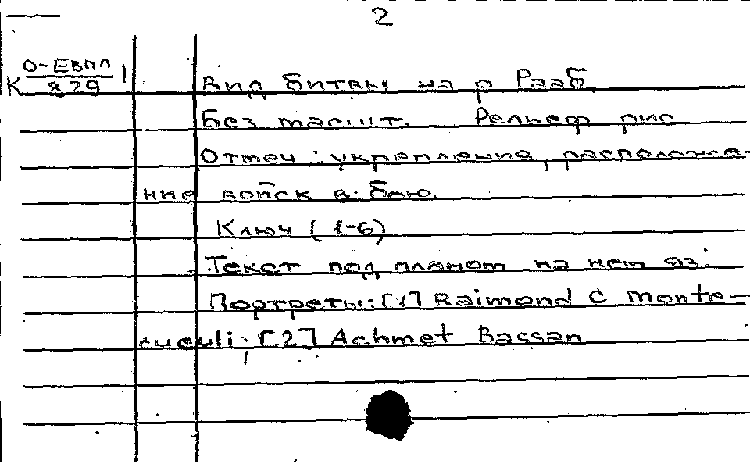 2
К О-ЕвПЛ/829 1
Вид битвы на р Рааб
Без масшт. Рельеф рис
Отмеч: укрепления, расположе-
ние войск в бою.
Ключ (1-6)
Текст под планом на нем яз.
Портреты: [1] Raimond C Monte-
cuculi; [2] Achmet Bassan